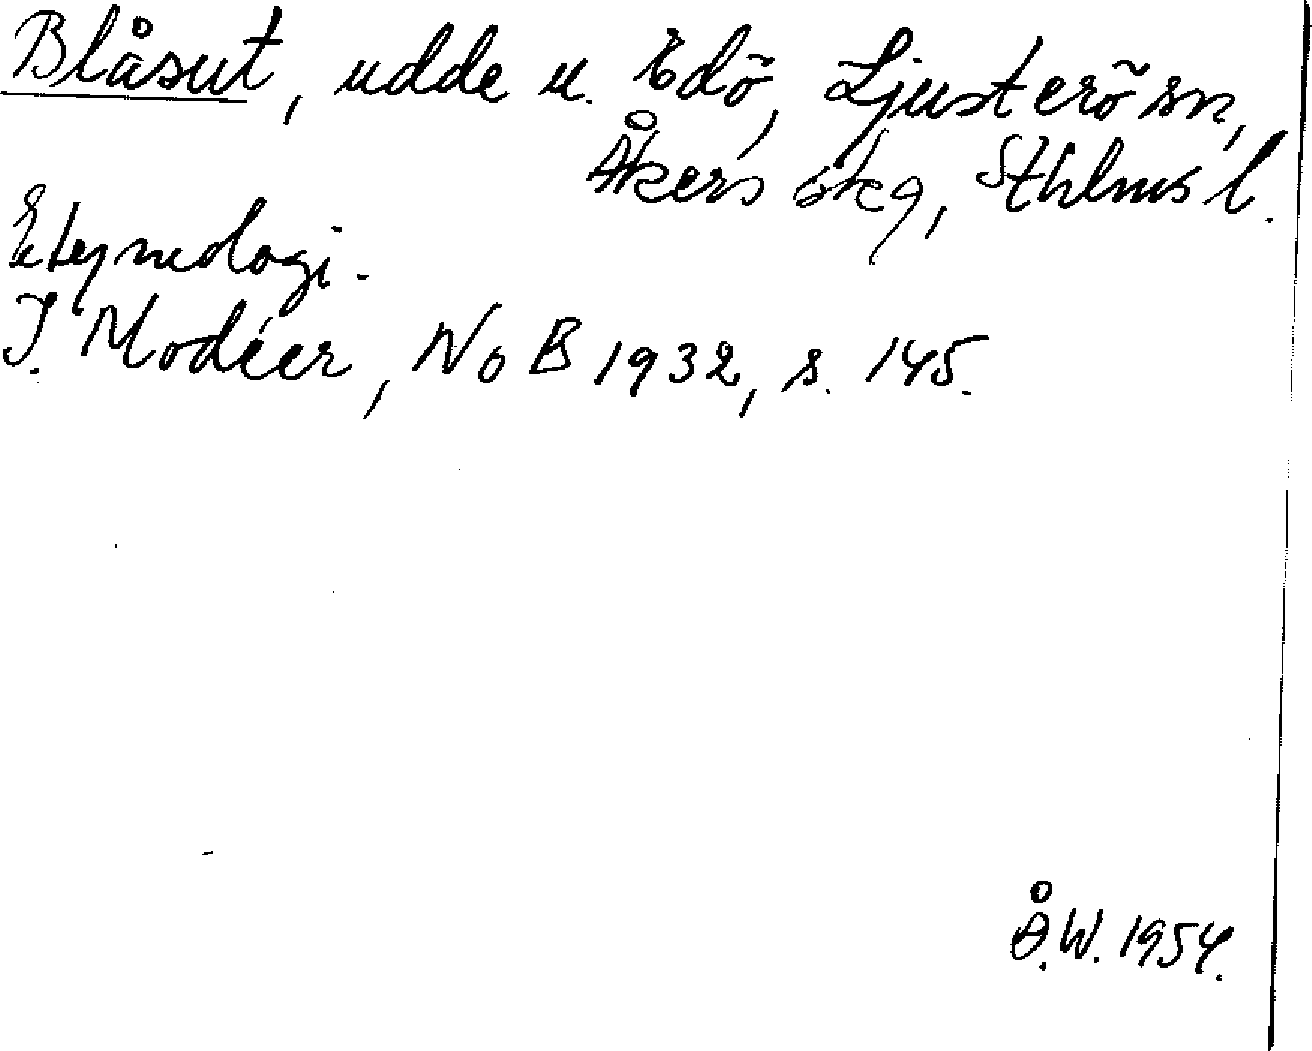 Blåsut, udde u. Edö, Ljusterö sn,
Åkers skg, Sthlms l.
Etymologi.
I. Modéer, NoB 1932, s. 145.
Å.W. 1954.